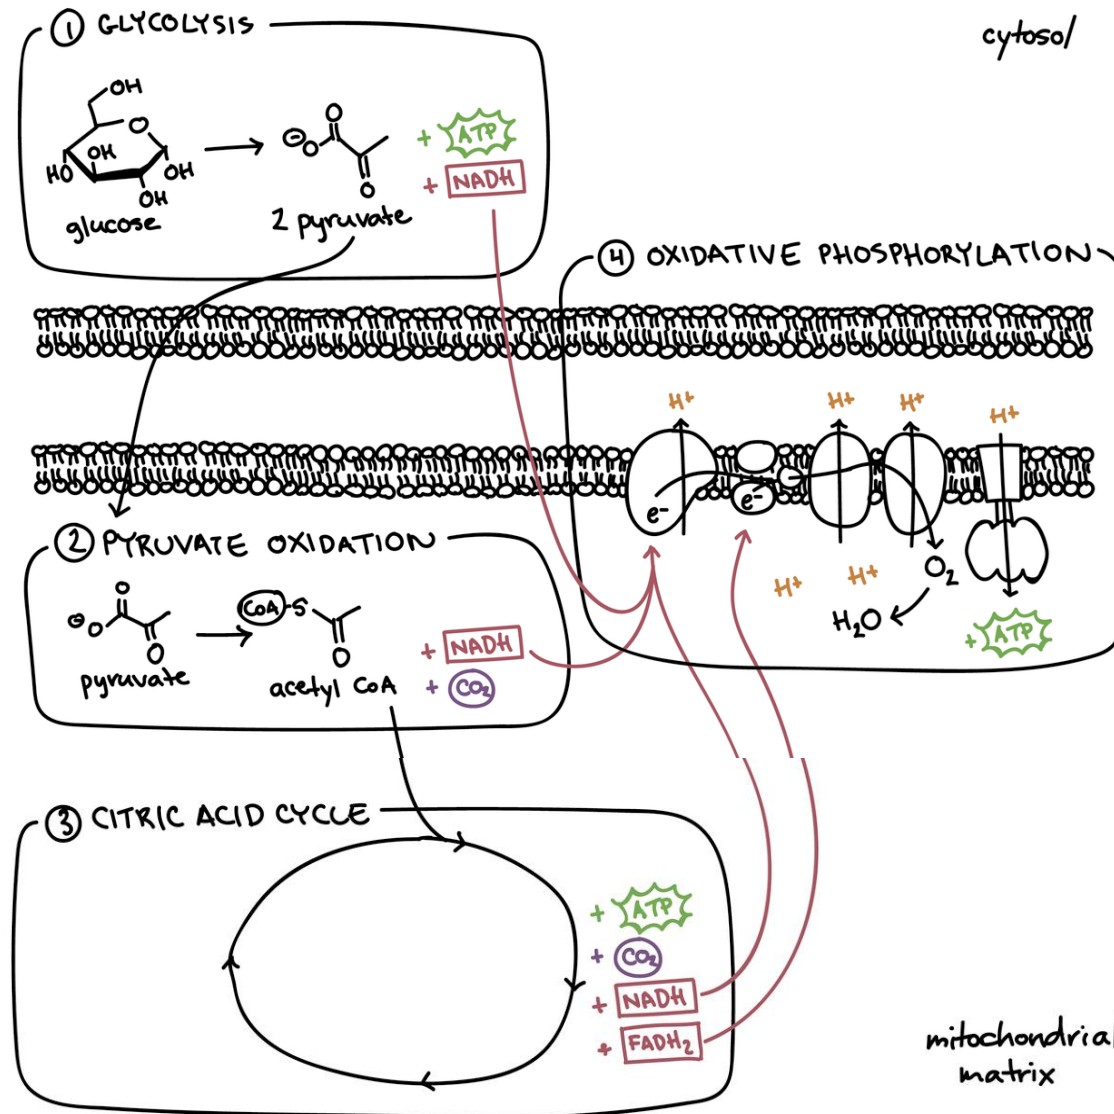 ① GLYCOLYSIS
cytosol
OH
O
OH
HO
OH
OH
glucose
O
⊖O
O
2 pyruvate
+ ATP
+ NADH
④ OXIDATIVE PHOSPHORYLATION
H+
H+
H+
H+
e-
e-
H+
H+
O₂
H₂O
+ ATP
② PYRUVATE OXIDATION
O
⊖O
O
pyruvate
CoA-S
O
acetyl CoA
+ NADH
+ CO₂
③ CITRIC ACID CYCLE
+ ATP
+ CO₂
+ NADH
+ FADH₂
mitochondrial
matrix